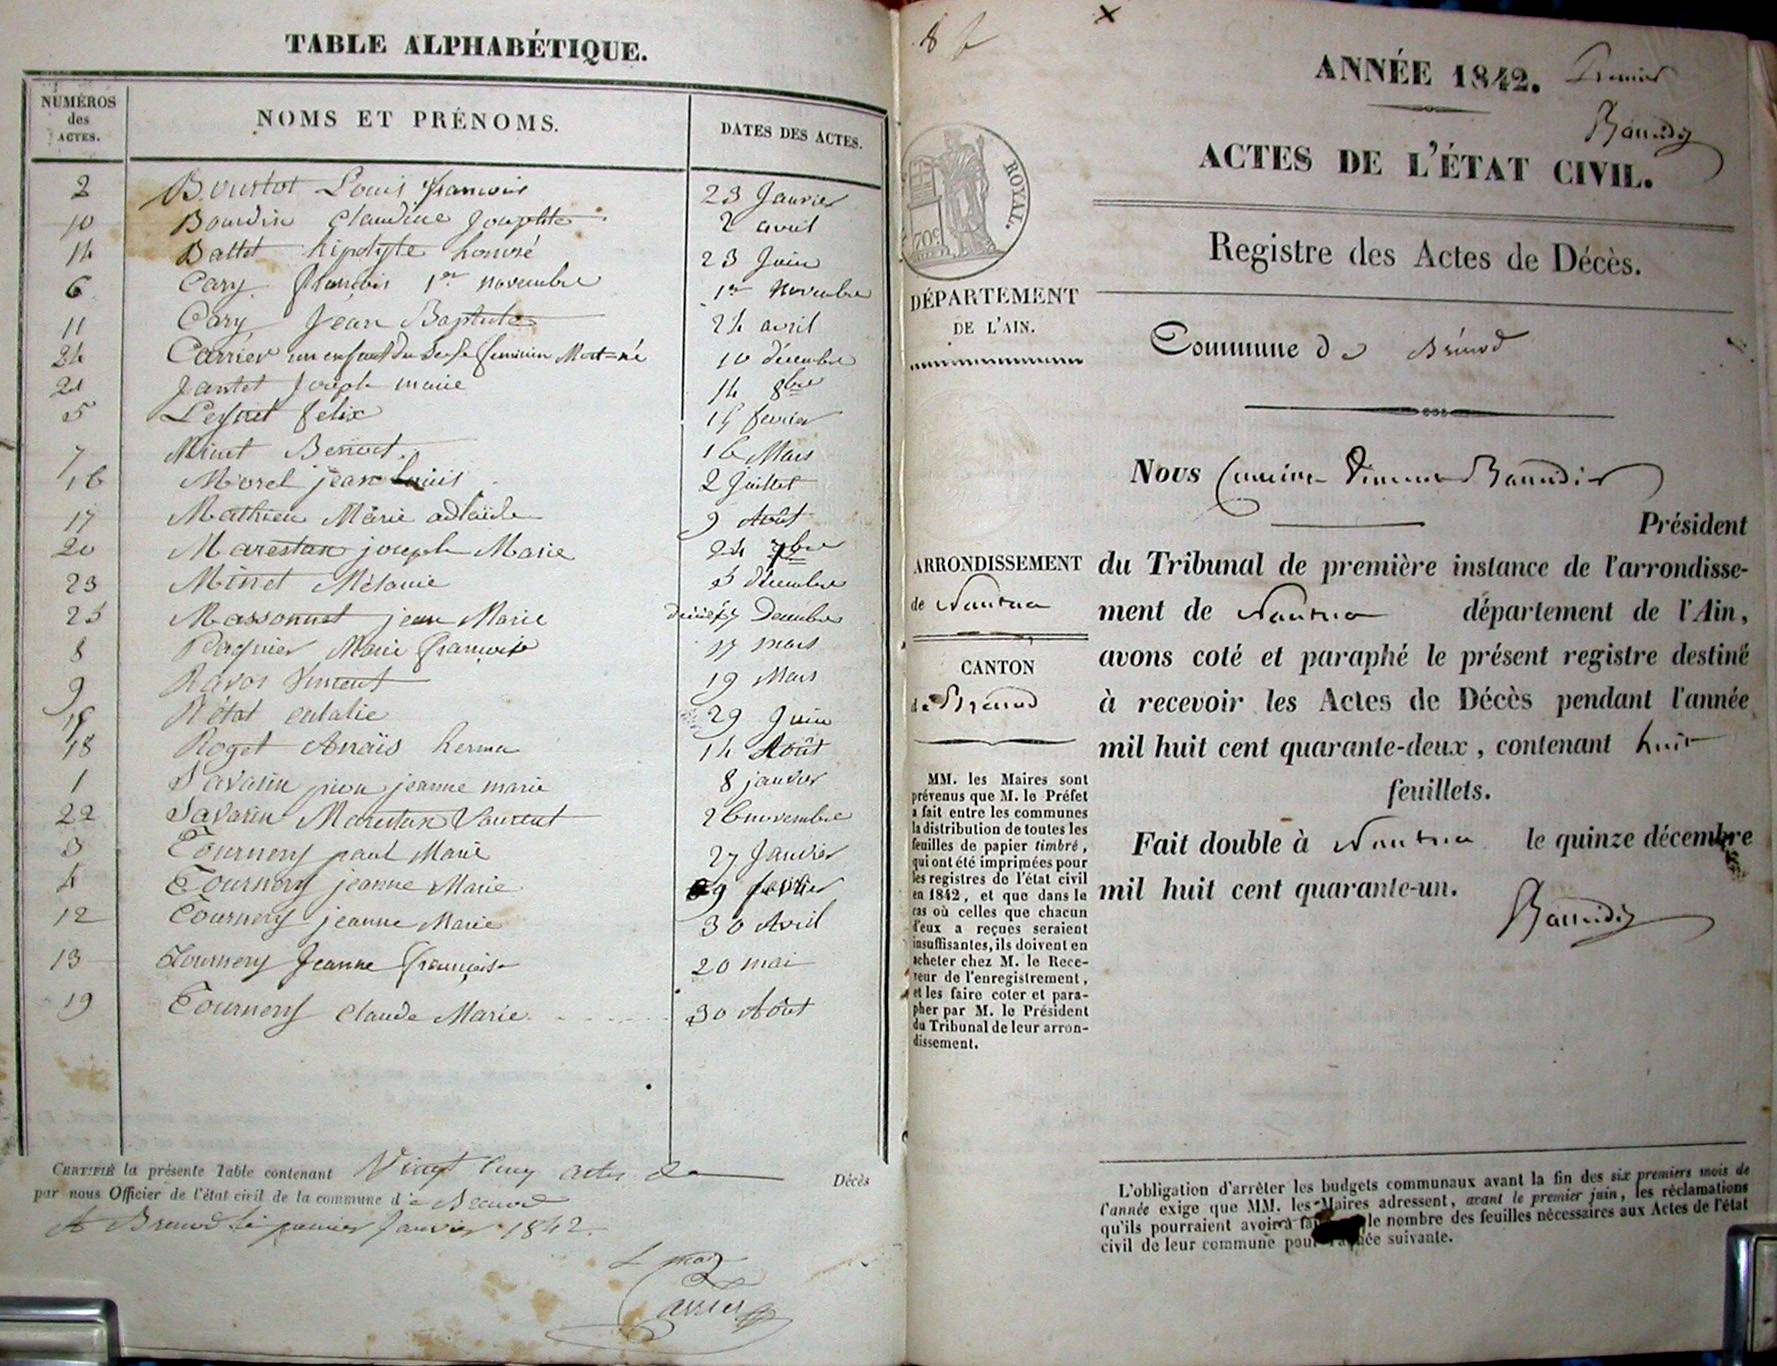 TABLE ALPHABÉTIQUE.
NUMÉROS des ACTES.
NOMS ET PRÉNOMS.
DATES DES ACTES.
2 Louis françois 23 Janvier
10 Bourdin Claudine Josephte 2 avril
14 Ballet hipolyte honoré 23 Juin
6 Cary François 1er novembre 1er Novembre
11 Cary Jean Baptiste 24 avril
24 Carrier un enfant du Sexe féminin Mort-né 10 décembre
21 Jantet Joseph marie 14 8bre
5 felix 15 fevrier
7 Minet Benoit 16 Mars
16 Morel jean Louis 2 Juillet
17 Mathieu Marie adlaïde 9 Août
20 Marestan joseph Marie 24 7bre
23 Minet Mélanie 5 décembre
25 Massonnet jean Marie 17 Decembre
8 Pasquier Marie Françoise 17 mars
9 Ravos Vincent 19 Mars
15 Rétat eulalie 29 Juin
18 Roget Anaïs herma 14 Août
1 Savarin jeanne marie 8 janvier
22 Savarin Marestan Laurent 26 novembre
3 Tournery paul Marie 27 Janvier
4 Tournery jeanne Marie 9 fevrier
12 Tournery jeanne Marie 30 Avril
13 Tournery Jeanne Françoise 20 mai
19 Tournery Claude Marie 30 Août
CERTIFIÉ la présente Table contenant Vingt cinq actes de Décès
par nous Officier de l'état civil de la commune de Brenod
A Brenod le premier Janvier 1842.
Le maire
Carrier
8 f
ANNÉE 1842. Premier
Baudin
ACTES DE L'ÉTAT CIVIL.
ROYAL.
70c
Registre des Actes de Décès.
DÉPARTEMENT
DE L'AIN.
Commune de Brénod
Nous
Président
ARRONDISSEMENT
de Nantua
CANTON
de Brénod
du Tribunal de première instance de l'arrondisse-
ment de Nantua département de l'Ain,
avons coté et paraphé le présent registre destiné
à recevoir les Actes de Décès pendant l'année
mil huit cent quarante-deux, contenant huit
feuillets.
Fait double à Nantua le quinze décembre
mil huit cent quarante-un.
MM. les Maires sont
prévenus que M. le Préfet
a fait entre les communes
la distribution de toutes les
feuilles de papier timbré,
qui ont été imprimées pour
les registres de l'état civil
en 1842, et que dans le
cas où celles que chacun
d'eux a reçues seraient
insuffisantes, ils doivent en
acheter chez M. le Rece-
veur de l'enregistrement,
et les faire coter et para-
pher par M. le Président
du Tribunal de leur arron-
dissement.
L'obligation d'arrêter les budgets communaux avant la fin des six premiers mois de
l'année exige que MM. les Maires adressent, avant le premier juin, les réclamations
qu'ils pourraient avoir à le nombre des feuilles nécessaires aux Actes de l'état
civil de leur commune pour l'année suivante.